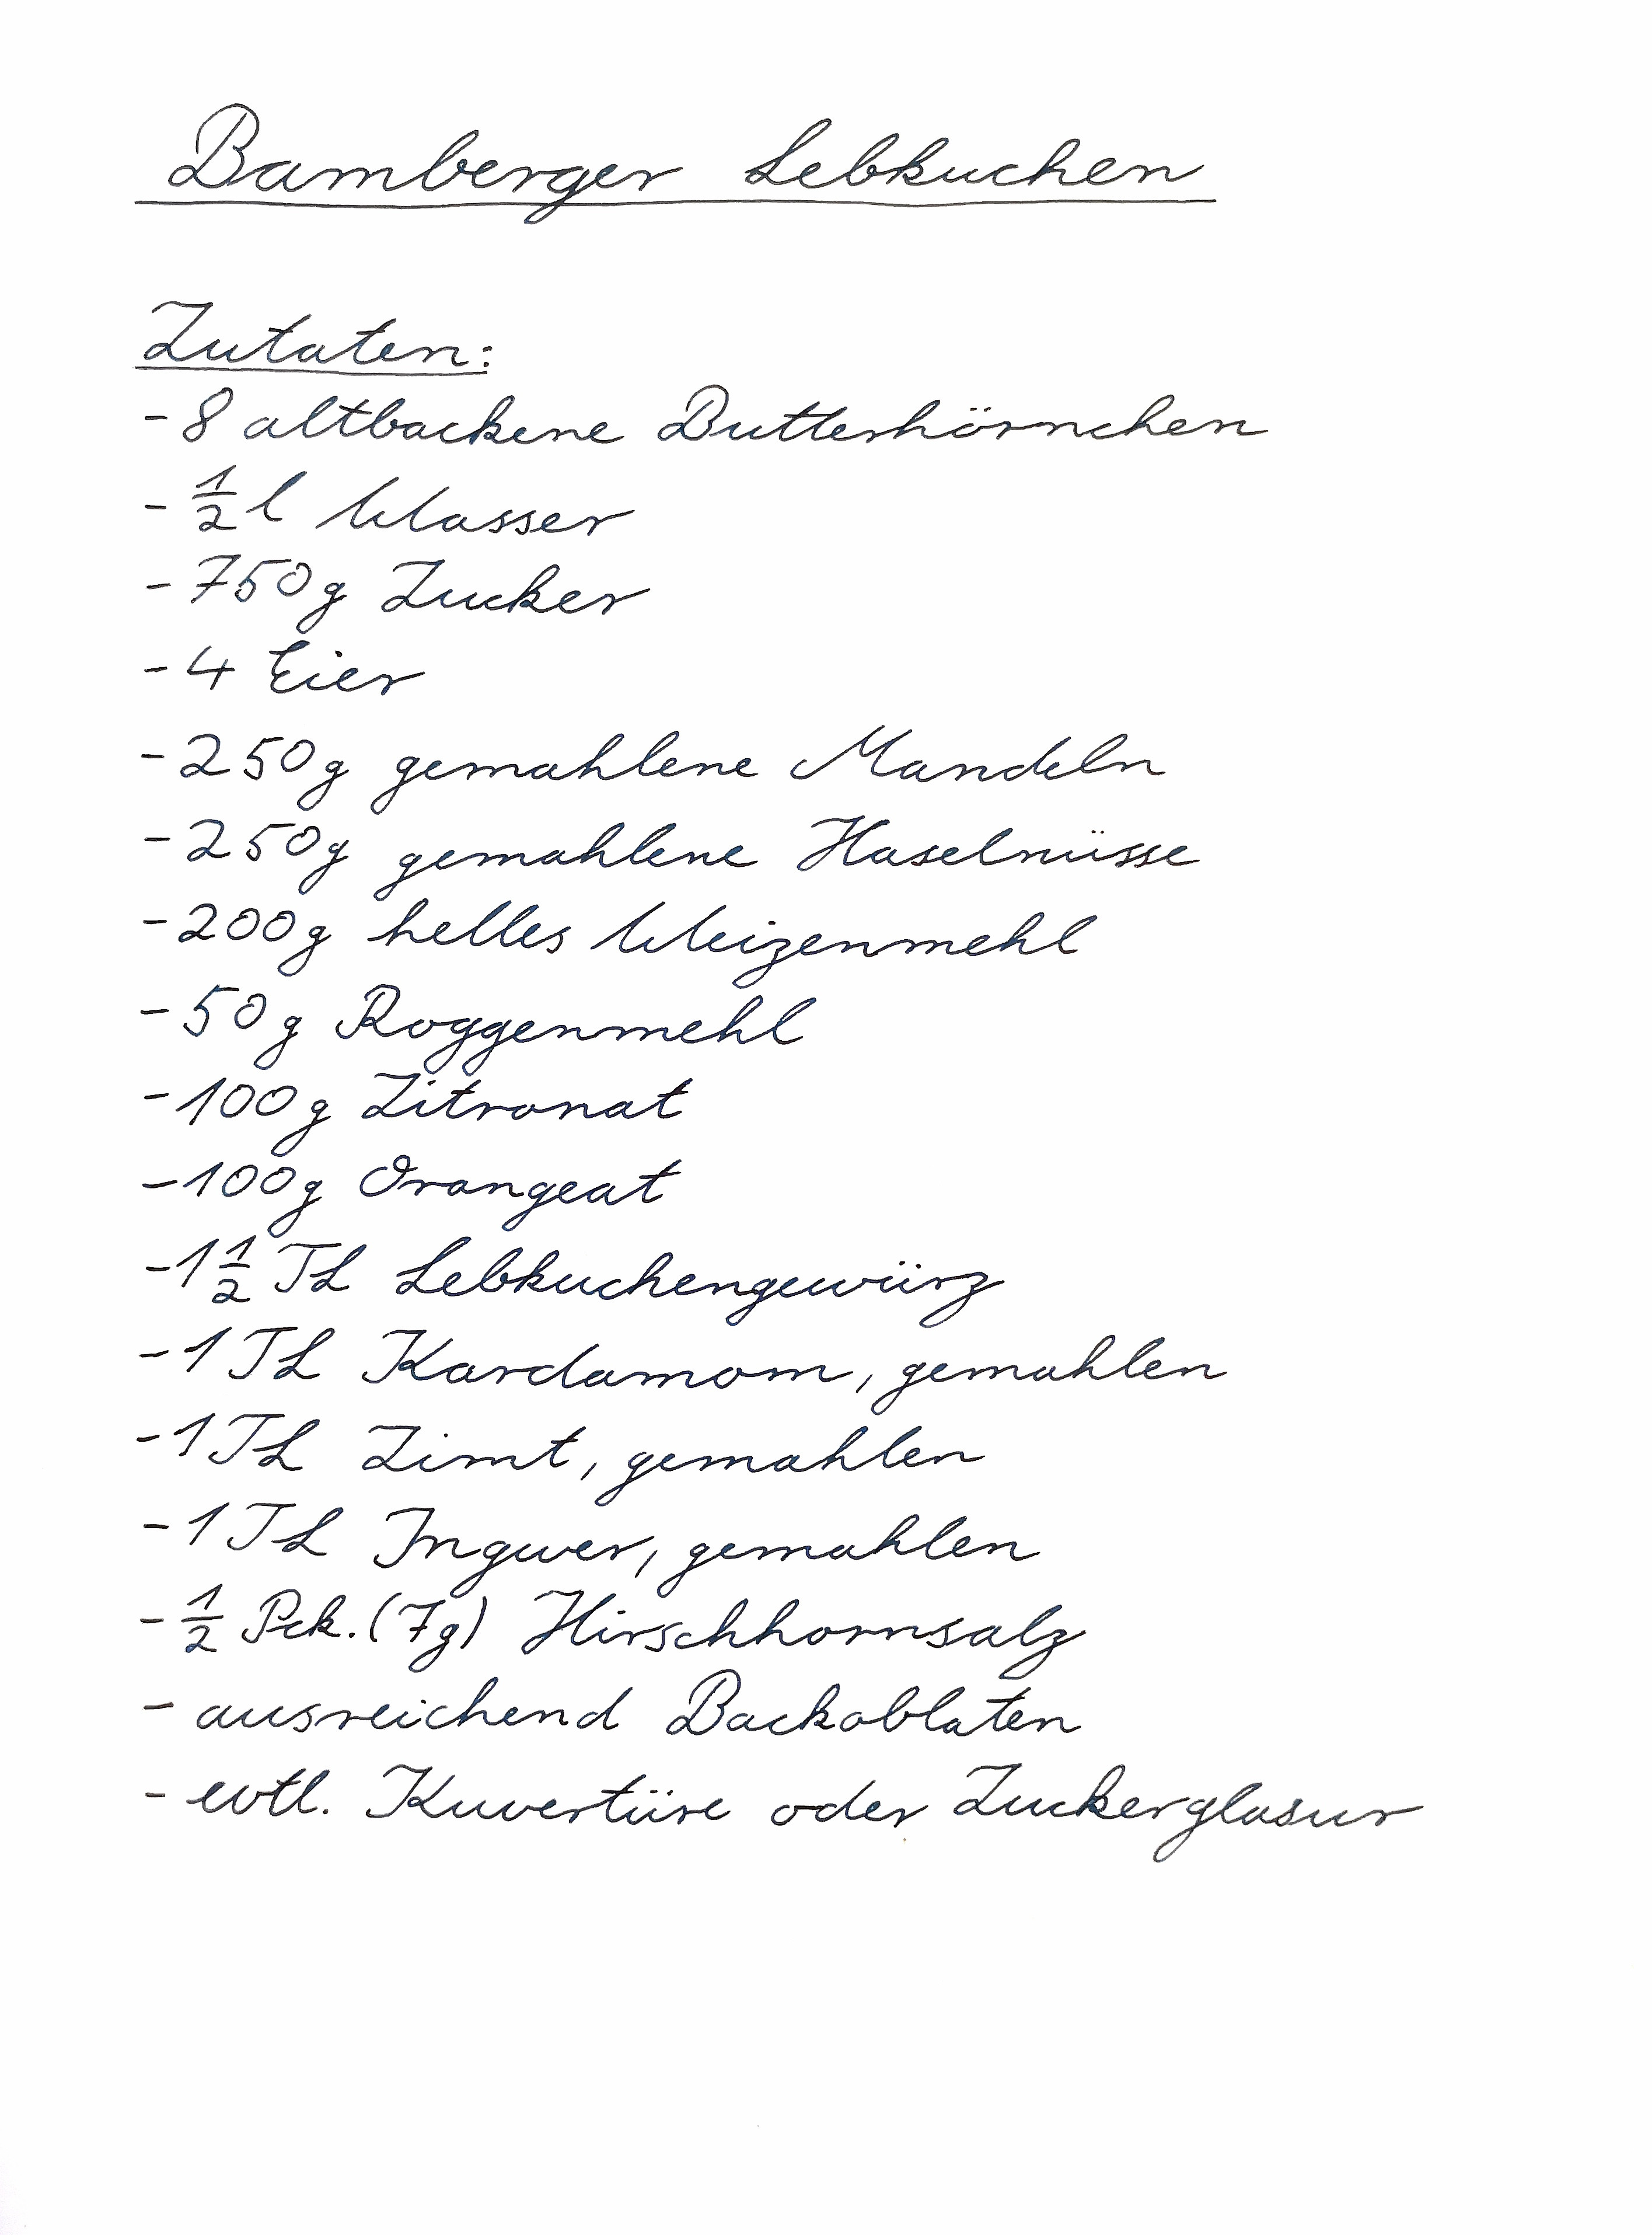 Bamberger Lebkuchen
Zutaten:
- 8 altbackene Butterhörnchen
- 1/2 l Wasser
- 750g Zucker
- 4 Eier
- 250g gemahlene Mandeln
- 250g gemahlene Haselnüsse
- 200g helles Weizenmehl
- 50g Roggenmehl
- 100g Zitronat
- 100g Orangeat
- 1 1/2 TL Lebkuchengewürz
- 1 TL Kardamom, gemahlen
- 1 TL Zimt, gemahlen
- 1 TL Ingwer, gemahlen
- 1/2 Pck. (7g) Hirschhornsalz
- ausreichend Backoblaten
- evtl. Kuvertüre oder Zuckerglasur